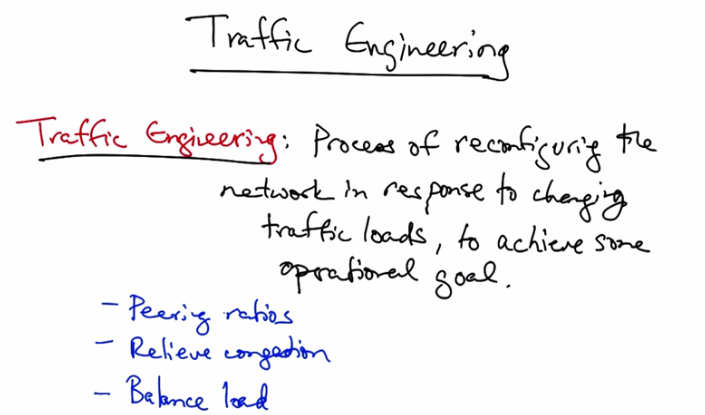 Traffic Engineering
Traffic Engineering: Process of reconfiguring the
network in response to changing
traffic loads, to achieve some
operational goal.
- Peering ratios
- Relieve congestion
- Balance load